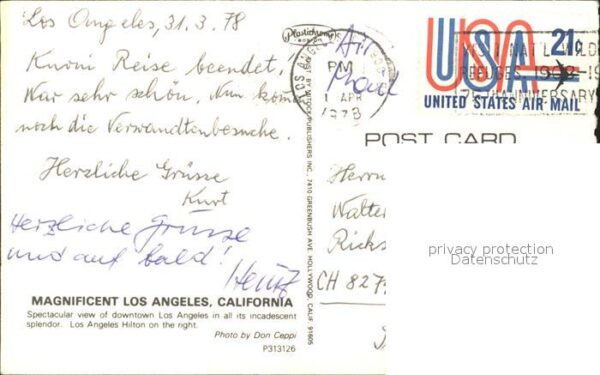 Los Angeles, 31.3.78
Kurvi Reise beendet,
War sehr schön. Nun kom
noch die Verwandtenbesuche.
Herzliche Grüsse
Kurt
Herzliche Grüsse
und auf bald!
Heinz
MAGNIFICENT LOS ANGELES, CALIFORNIA
Spectacular view of downtown Los Angeles in all its incadescent
splendor. Los Angeles Hilton on the right.
Photo by Don Ceppi
P313126
Plastichrome
LOS ANGELES
PM
1 APR
1978
Air
Mail
PUBLISHERS INC., 7410 GREENBUSH AVE. HOLLYWOOD, CALIF. 91605
USA 21c
UNITED STATES AIR MAIL
VISIT NAT'L WILD
REFUGES, 1903-1
75TH ANNIVERSARY
POST CARD
Herrn
Walter
Ricks
CH 827
privacy protection
Datenschutz